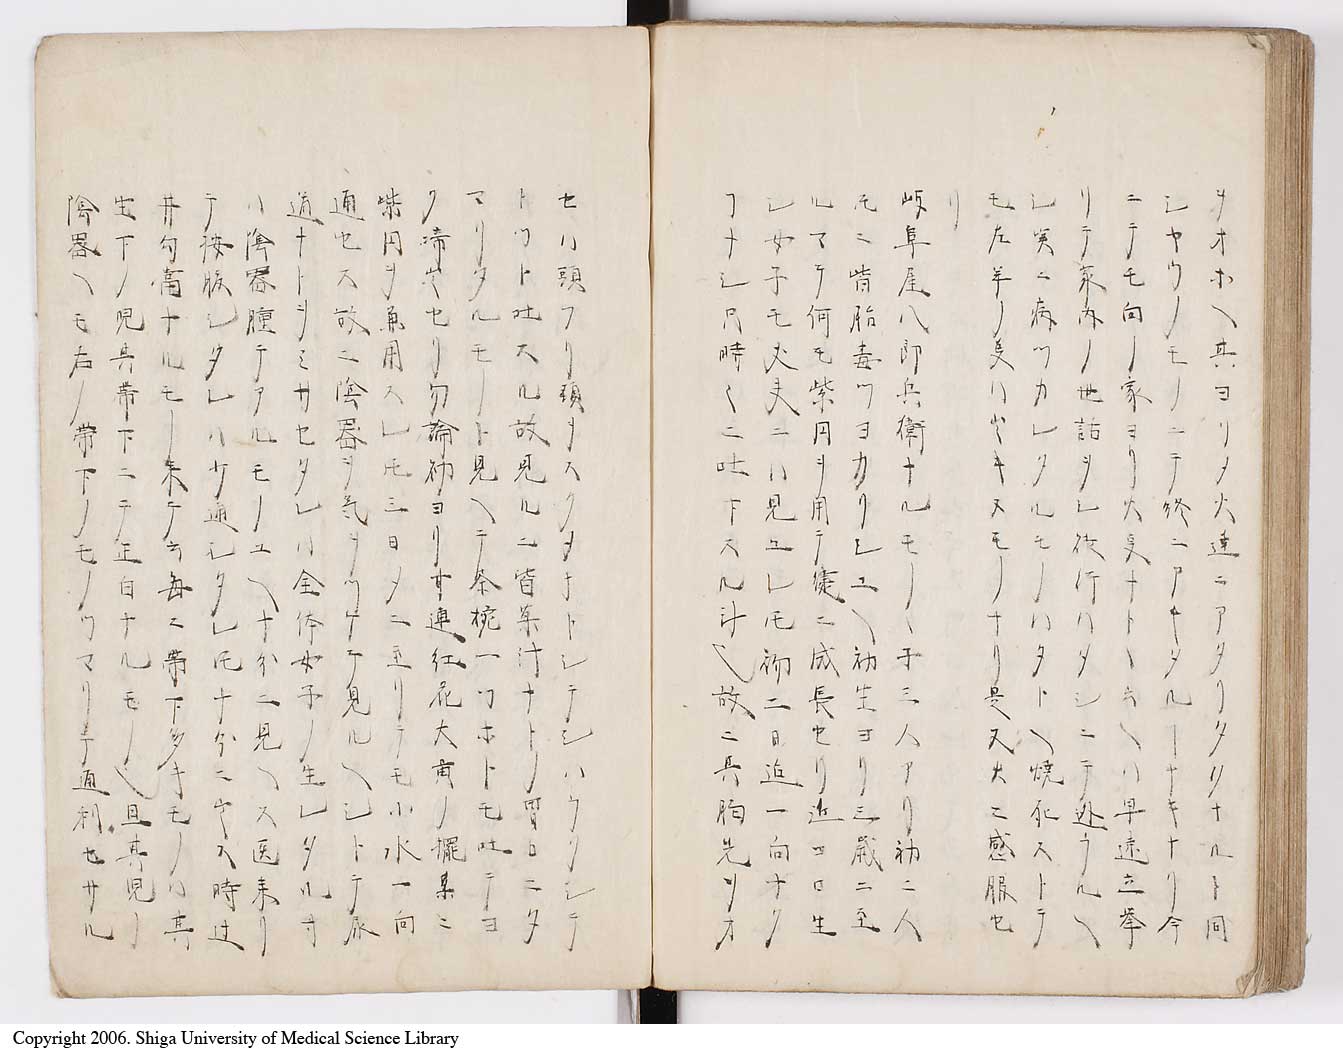 ヲオホヘ其ヨリタ火達ニアタリタリナルト同
シヤウノモノニテ終ニアキタルーナキナリ今
ニテモ向ノ家ヨリ火事ナトヽ云ヘハ早速立挙
リテ家内ノ世話ヲシ夜行ハタシニテ処ラルヘ
シ実ニ病ツカレタルモノハタトヘ焼死ストテ
モ左羊ノ事ハ出キヌモノナリ是又大ニ感服セ
リ
岐阜尾八郎兵衛ナルモノヽ子三人アリ初二人
モニ皆胎毒ツヨカリシユヘ初生ヨリ三歳ニ至
ルマテ何モ紫円ヲ用テ後ニ成長セリ近コロ生
シ女子モ丈夫ニハ見ユレ𪜈初二日迄一向ナク
ーナシ只時々ニ吐下スル斗也故ニ其胸先ヲオ
セハ頭フリ頸ヲスクメナトシテシハクタシテ
トツト吐スル故見ルニ皆薬汁ナトノ胃口ニタ
マリタルモノト見ヘテ茶椀一ツホトモ吐テヨ
ク啼出セリ勿論初ヨリ甘連紅花大黄ノ擺薬ニ
紫円ヲ兼用スレ𪜈三日メニ至リテモ小水一向
通セス故ニ陰器ヲ気ヲツケテ見ルヘシトテ尿
道ナトヲミサセタレハ全体女子ノ生レタル寸
ハ陰器腫テアルモノユヘナ分ニ見ヘス医来リ
テ按腹シタレハ少通シタレ𪜈十分ニ出ス時辻
井勾当ナルモノ来テ云毎ニ帯下多キモノハ其
生下ノ児其帯下ニテ正白ナルモノ也且其児ノ
陰器ヘモ右ノ帯下ノモノツマリテ通利セサル
Copyright 2006. Shiga University of Medical Science Library